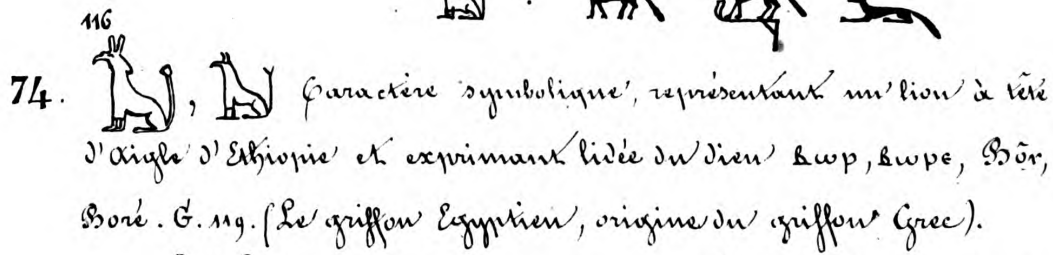 116
74. , Caractère symbolique, représentant un lion à tête
d'aigle d'Ethiopie et exprimant l'idée du dieu ⲃⲱⲣ, ⲃⲱⲣⲉ, Bôr,
Boré. G. 119. (Le griffon Egyptien, origine du griffon Grec).